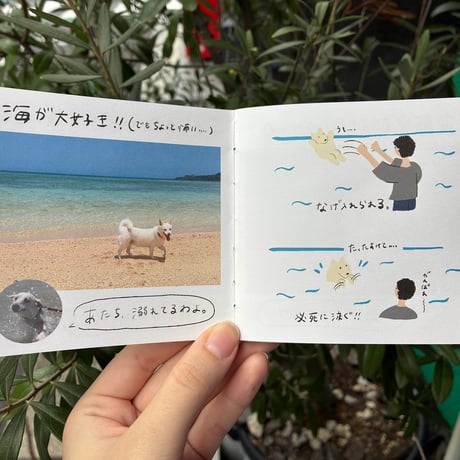 海が大好き!!(でもちょっと怖い....)
あたち、溺れてるわよ。
うっ....
なげ入れられる。
たったすけて....
がんばれ〜
必死に泳ぐ!!